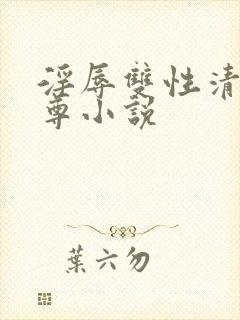 淫辱雙性清
尊小說
葉六勿